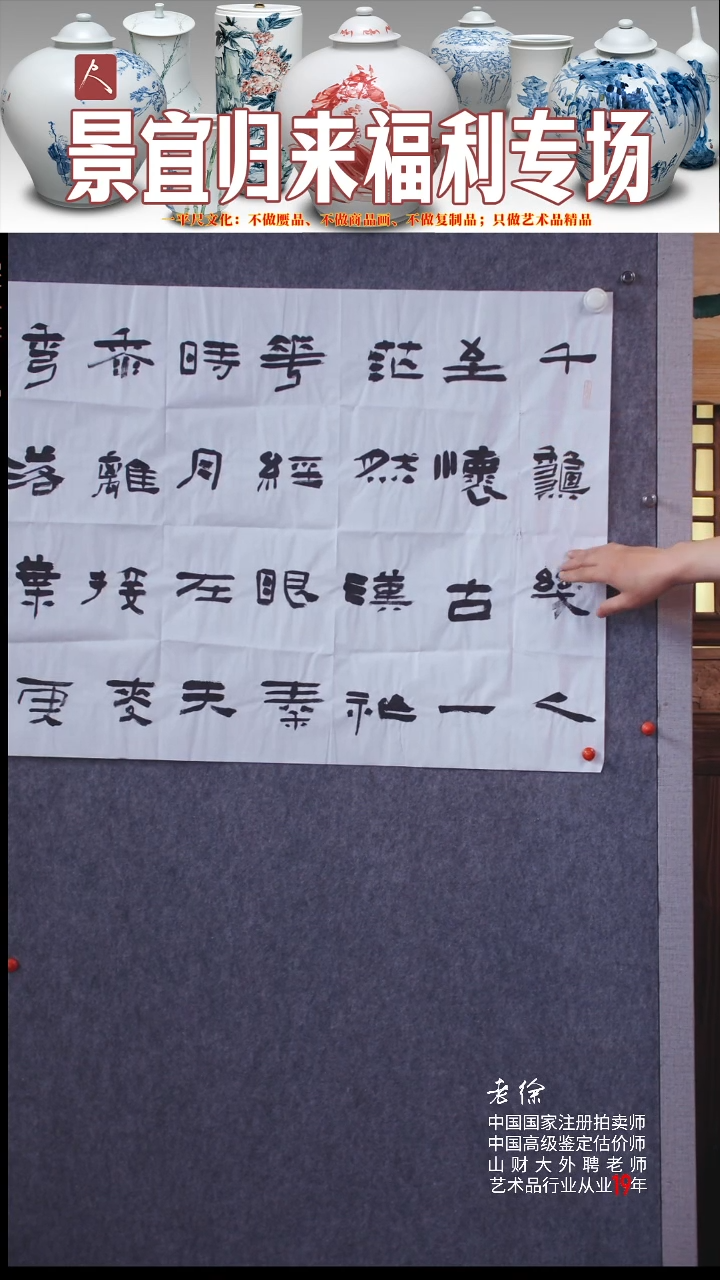 人
景宜归来福利专场
一平尺文化：不做赝品、不做商品画、不做复制品；只做艺术品精品
千 幾人
至懷古一
茫然漢祉
華經眼秦
時月左天
黍離接麥
彎落葉更
老徐
中国国家注册拍卖师
中国高级鉴定估价师
山财大外聘老师
艺术品行业从业19年